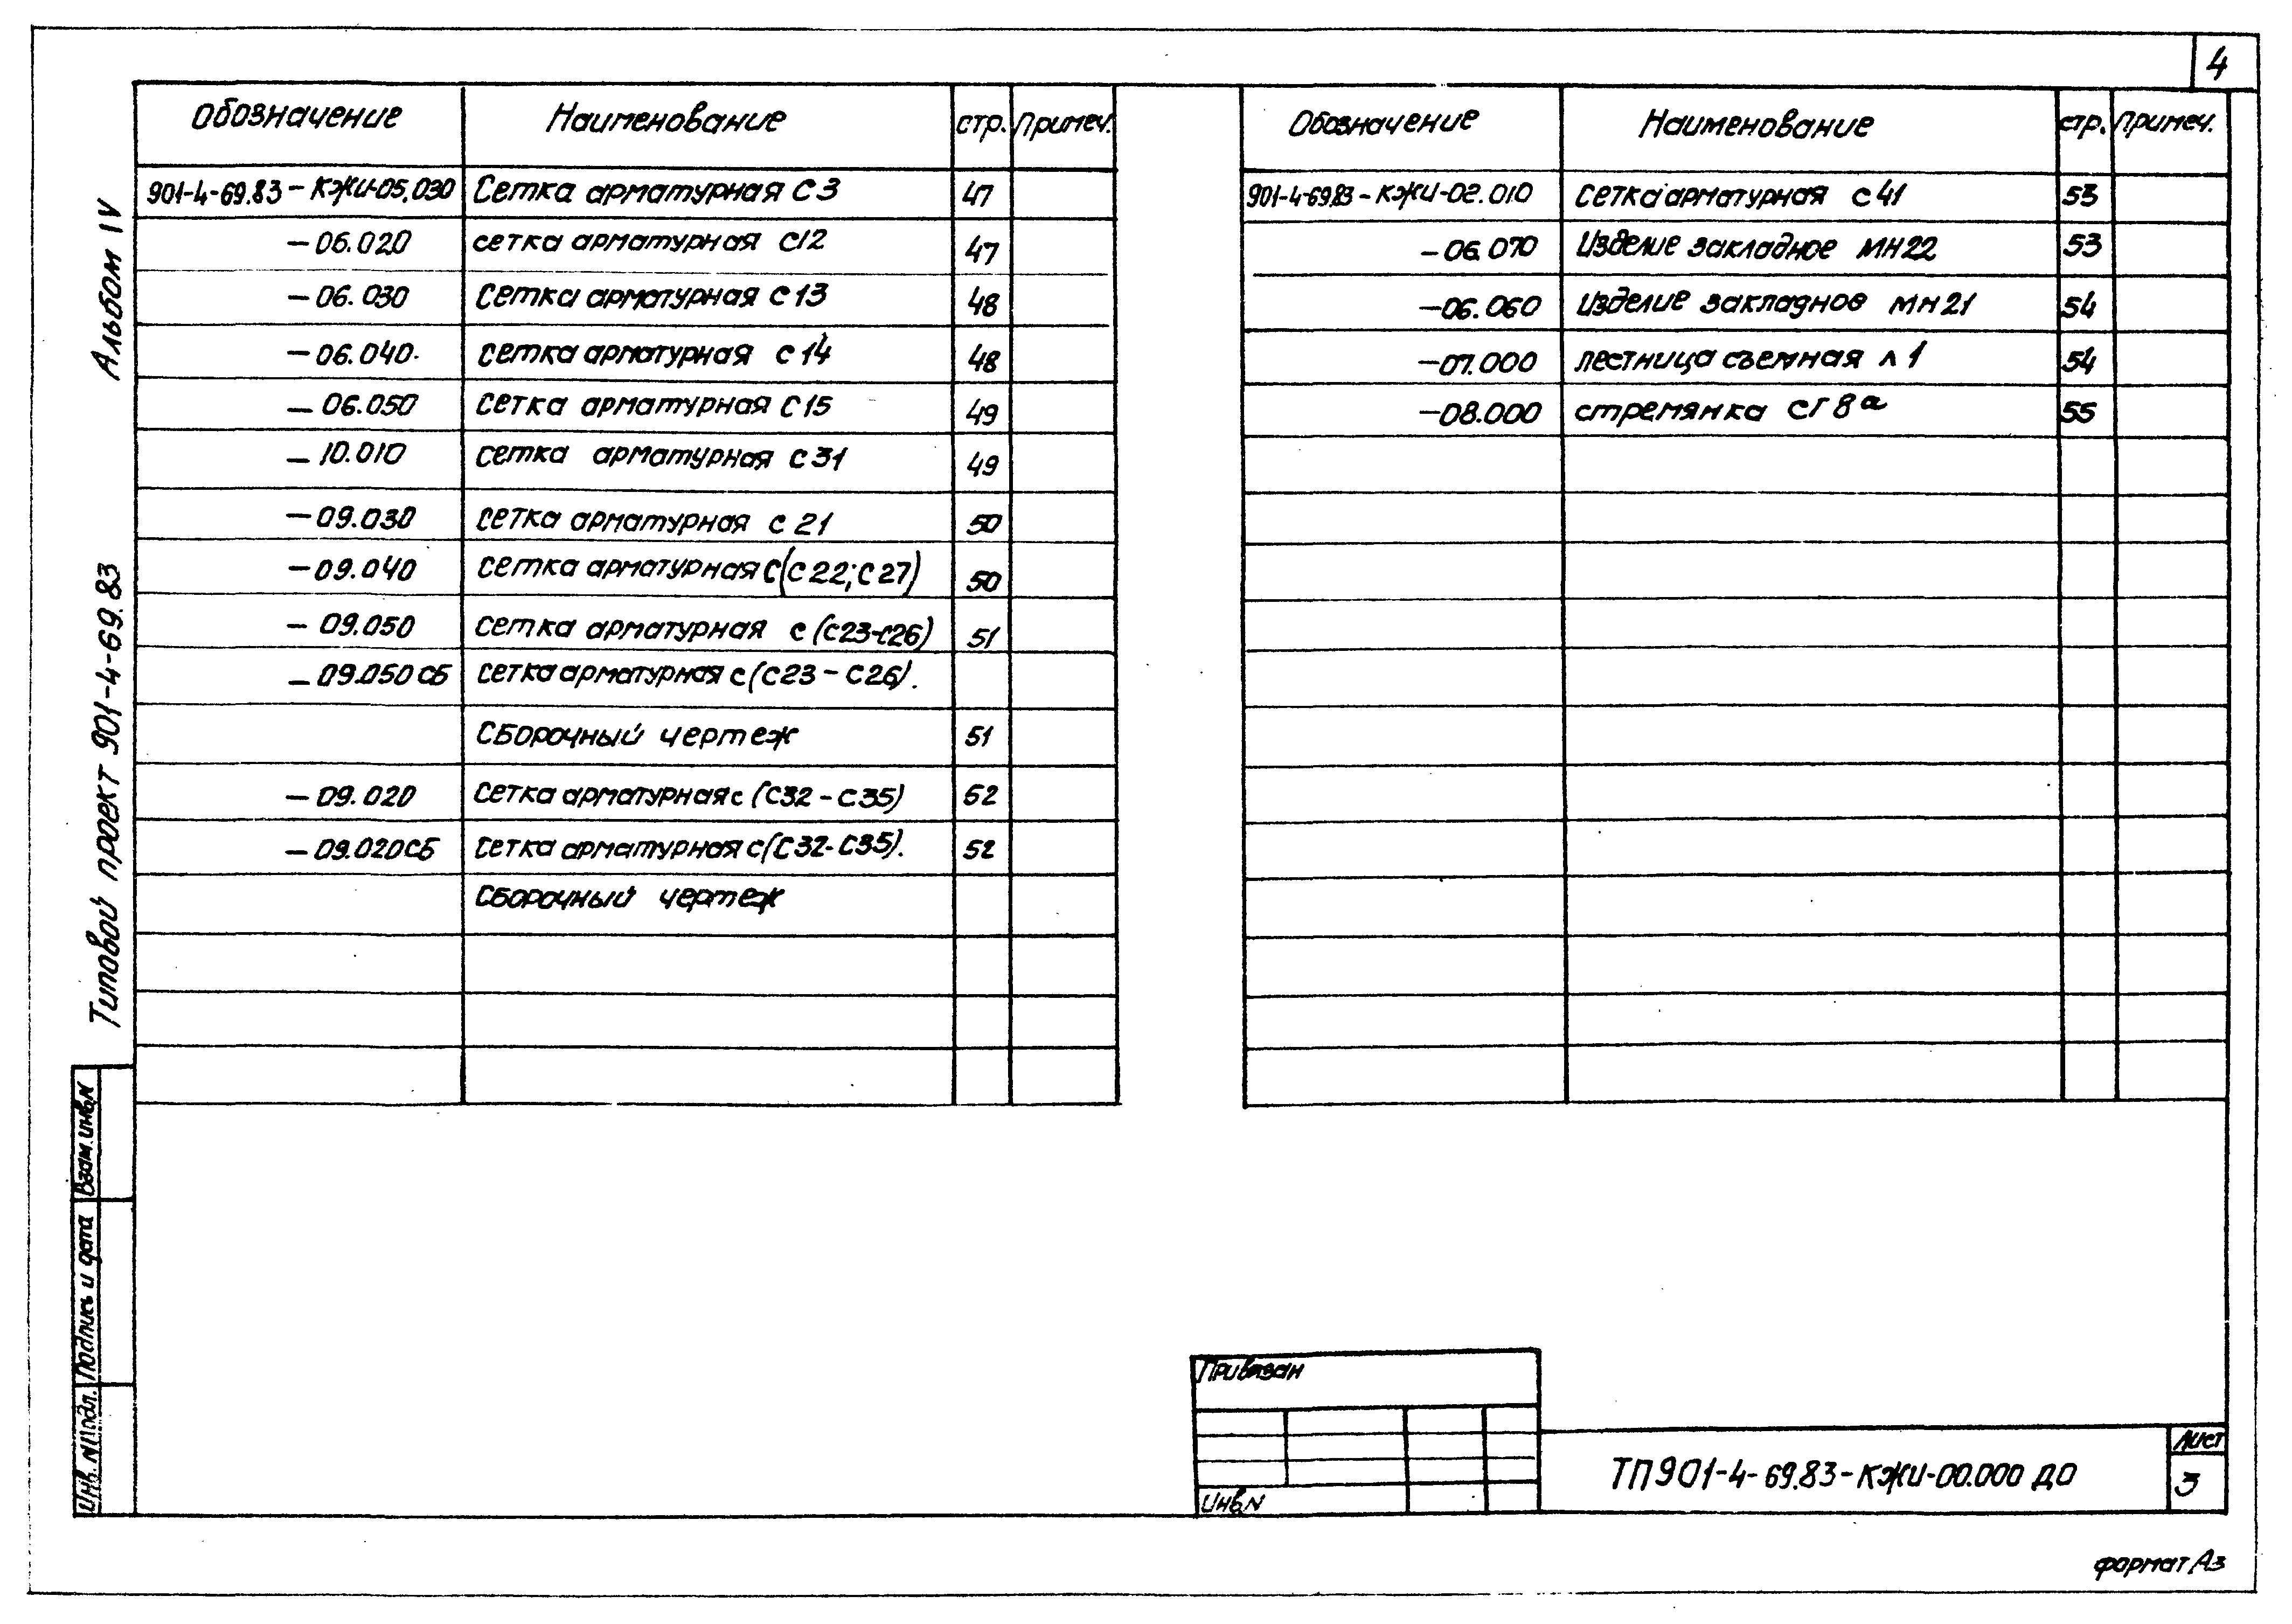 4
Альбом IV
Типовой проект 901-4-69.83
Обозначение Наименование стр. Примеч.
901-4-69.83-КЖИ-05.030 Сетка арматурная С3 47
-06.020 сетка арматурная С12 47
-06.030 Сетка арматурная С13 48
-06.040. Сетка арматурная С14 48
-06.050 Сетка арматурная С15 49
-10.010 Сетка арматурная С31 49
-09.030 Сетка арматурная С21 50
-09.040 Сетка арматурная С(С22;С27) 50
-09.050 Сетка арматурная С(С23-С26) 51
-09.050 СБ Сетка арматурная С(С23-С26).
Сборочный чертеж 51
-09.020 Сетка арматурная С(С32-С35) 52
-09.020СБ Сетка арматурная С(С32-С35). 52
Сборочный чертеж
Обозначение Наименование стр. Примеч.
901-4-69.83-КЖИ-02.010 Сетка арматурная С41 53
-06.070 Изделие закладное МН22 53
-06.060 Изделие закладное МН21 54
-07.000 лестница съемная Л1 54
-08.000 стремянка СГ8а 55
Взам.инв.N
Подпись и дата
Инв. N подл.
Привязан
Инв.N
ТП901-4-69.83-КЖИ-00.000 ДО
Лист
3
формат А3